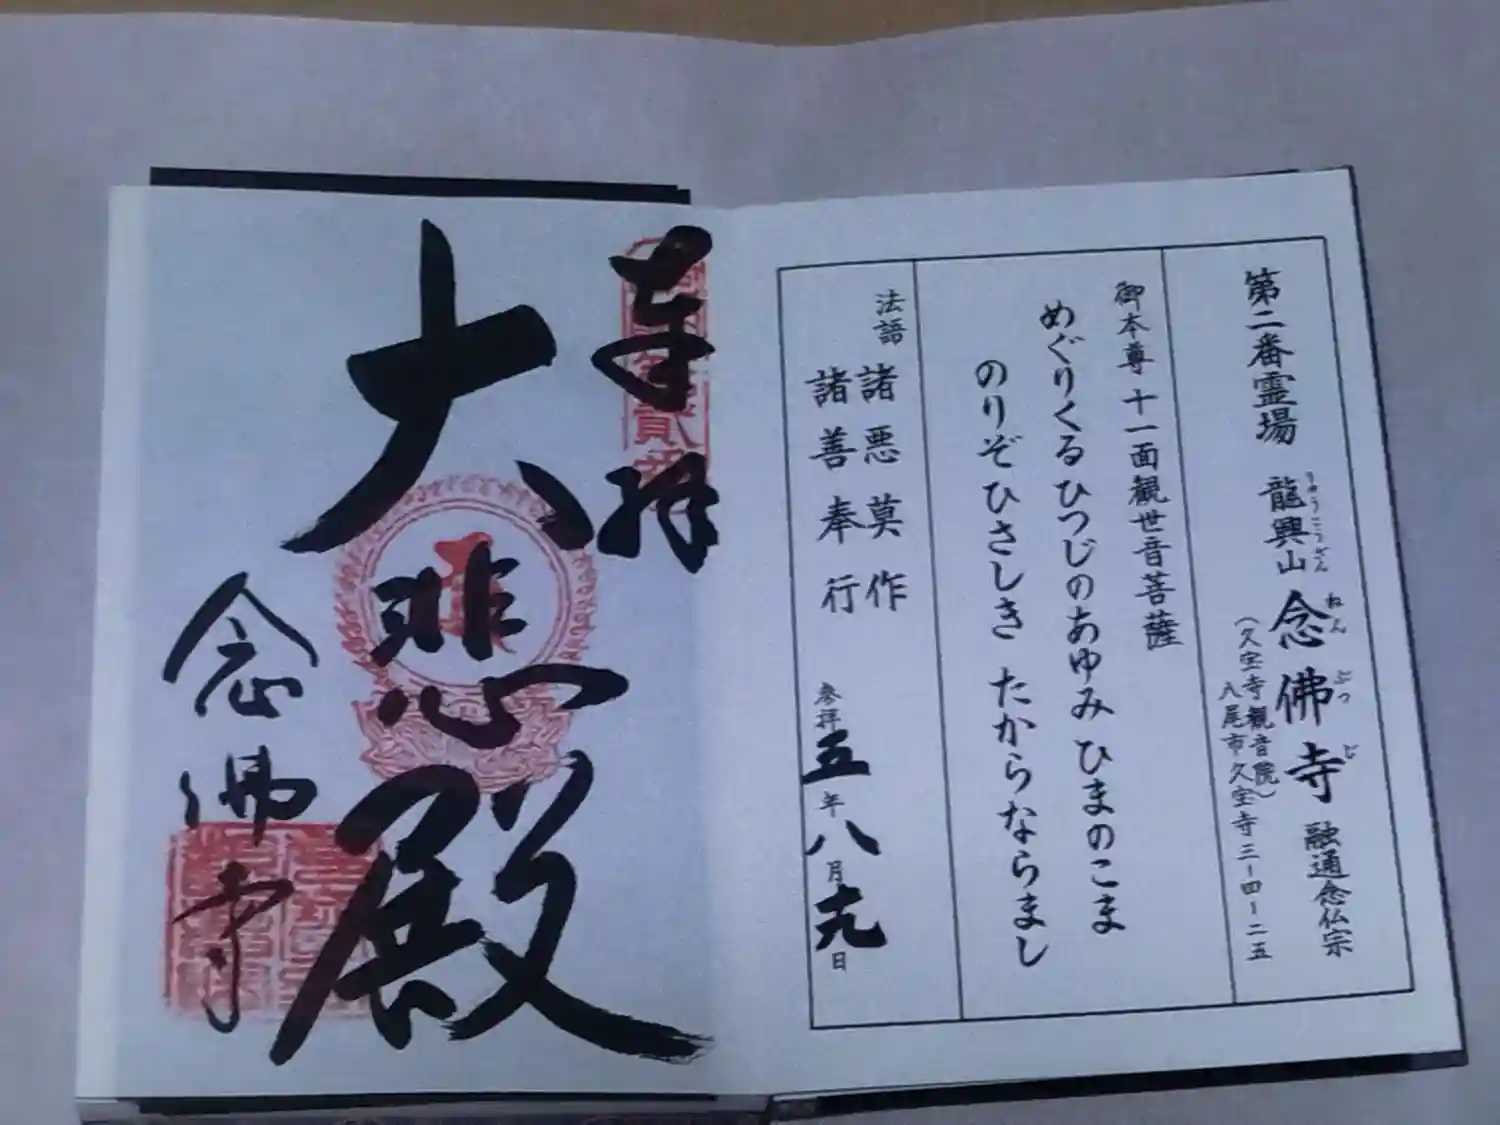 第二番霊場 龍興山 念佛寺 融通念仏宗
りゅうこうざん ねんぶつじ
(久宝寺観音院)
八尾市久宝寺三ー四ー二五
御本尊 十一面観世音菩薩
めぐりくるひつじのあゆみ ひまのこま
のりぞひさしき たからならまし
法語
諸悪莫作
諸善奉行
参拝五年八月十九日
奉拝
大悲殿
念佛寺